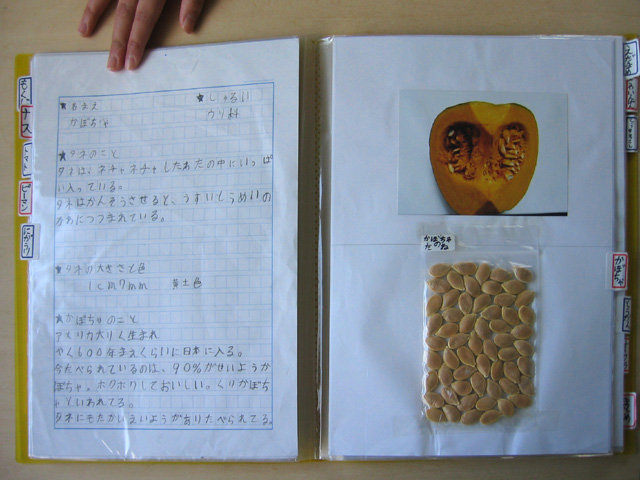 ナス
トマト
ピーマン
★なまえ ★しゅるい
かぼちゃ ウリ科
★タネのこと
タネは、ネチャネチャしたわたの中にいっぱ
い入っている。
タネはかんそうさせると、うすいとうめいの
かわにつつまれている。
★タネの大きさと色
1cm7mm 黄土色
★かぼちゃのこと
アメリカ大りく生まれ
やく600年まえくらいに日本に入る。
今たべられているのは、90%がせいようか
ぼちゃ。ホクホクしておいしい。くりかぼち
ゃといわれてる。
タネにもたかいえいようがありたべられてる。
かぼちゃ
の
たね
かぼちゃ